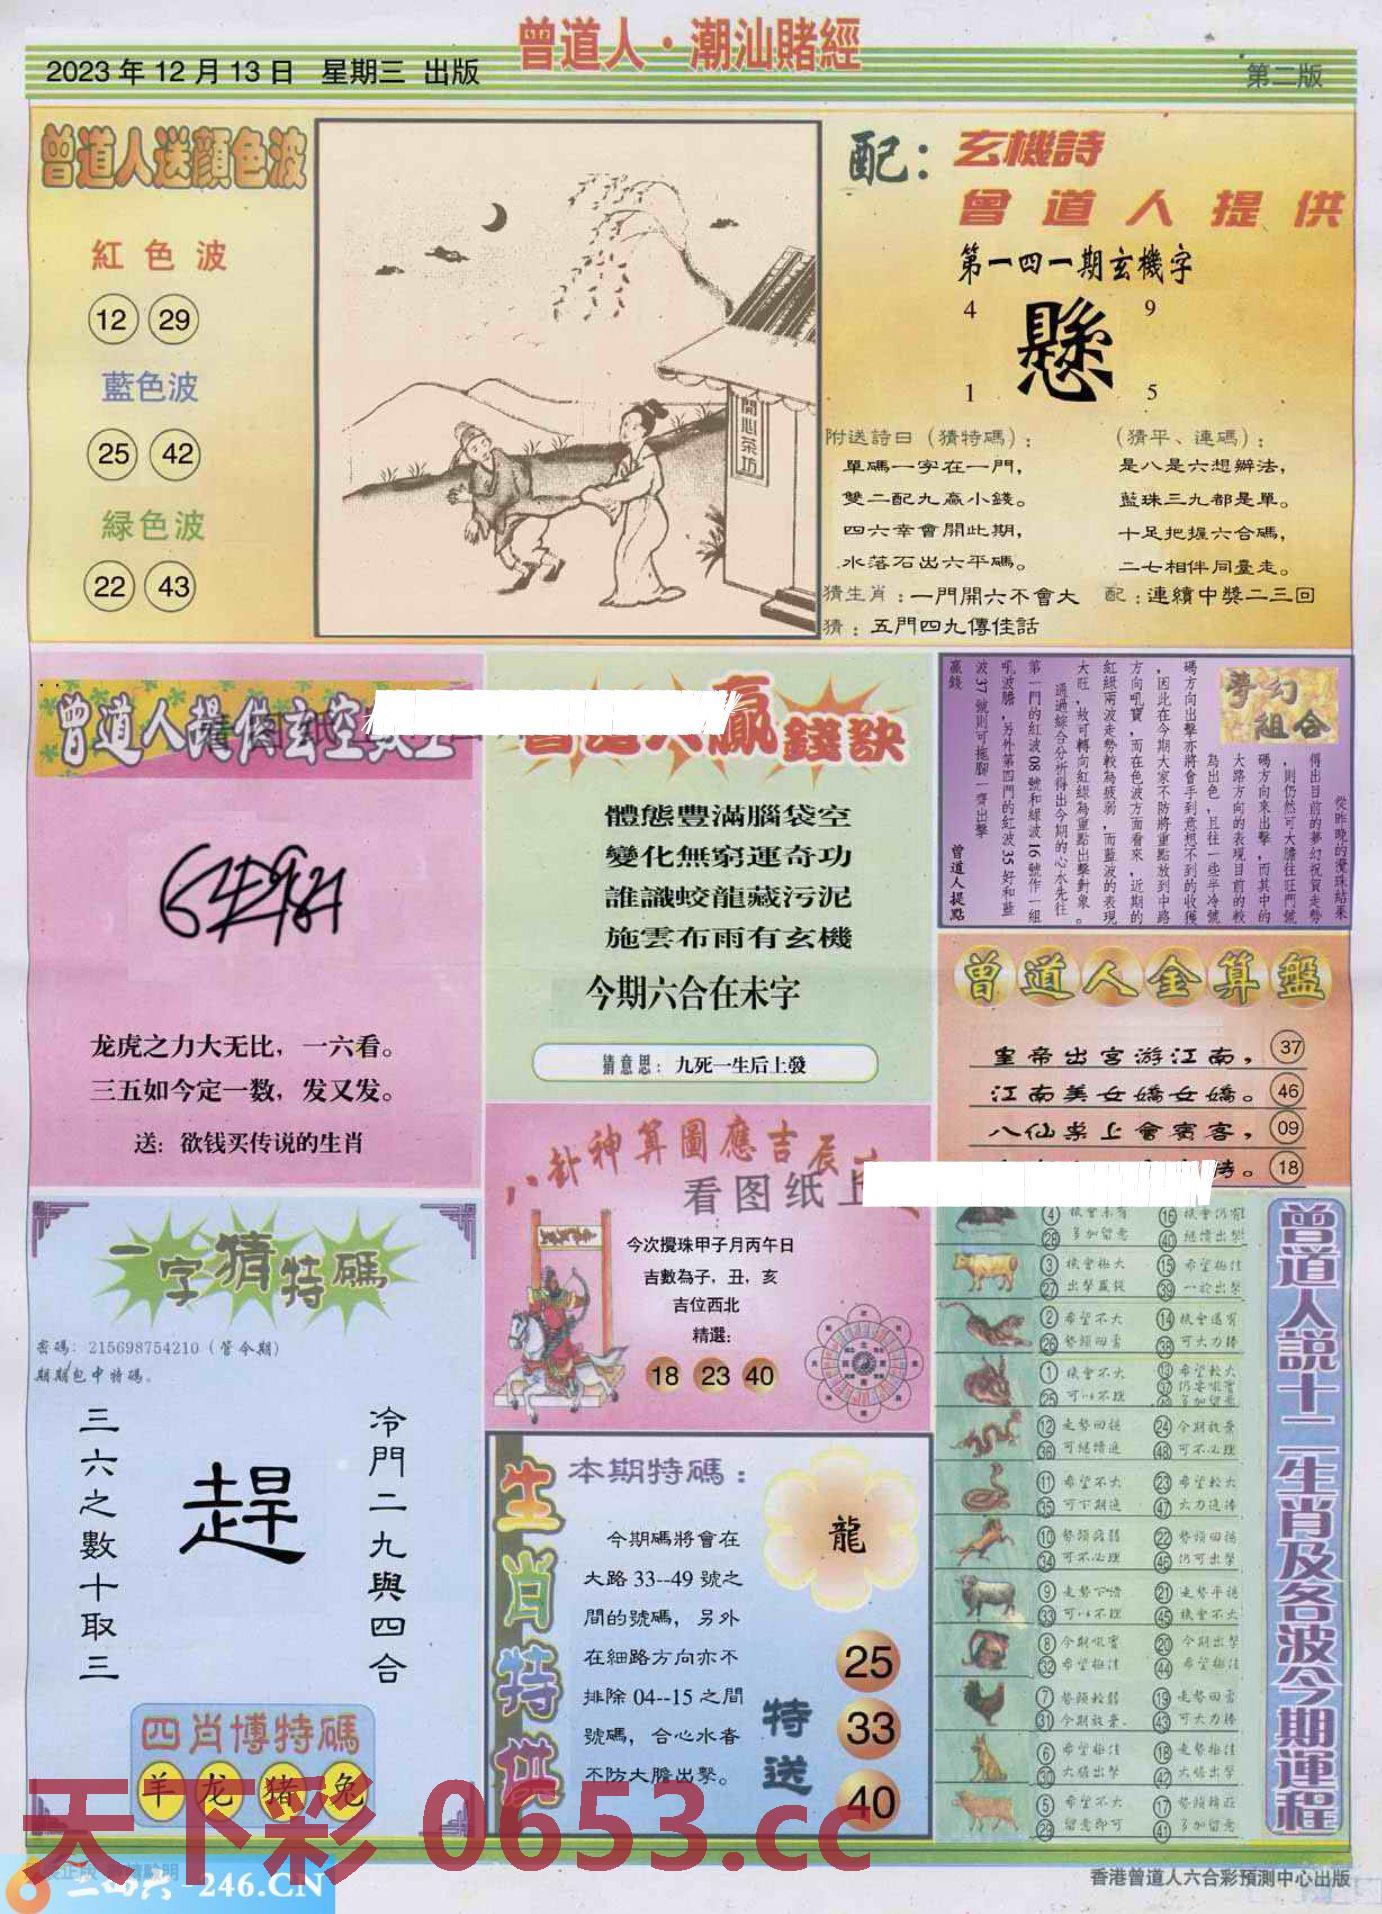 曾道人·潮汕賭經
2023年12月13日 星期三 出版
第二版
曾道人送顏色波
紅色波
12 29
藍色波
25 42
緑色波
22 43
開心茶坊
配：玄機詩
曾道人提供
第一四一期玄機字
4 9
懸
1 5
附送詩曰（猜特碼）：
單碼一字在一門，
雙二配九贏小錢。
四六幸會開此期，
水落石出六平碼。
（猜平、連碼）：
是八是六想辦法，
藍珠三九都是單。
十足把握六合碼，
二七相伴同臺走。
猜生肖：一門開六不會大 配：連續中獎二三回
猜：五門四九傳佳話
曾道人提供玄空數
龙虎之力大无比，一六看。
三五如今定一数，发又发。
送：欲钱买传说的生肖
贏錢訣
體態豐滿腦袋空
變化無窮運奇功
誰識蛟龍藏污泥
施雲布雨有玄機
今期六合在未字
猜意思：九死一生后上發
夢幻組合
從昨晚的攪珠結果
得出目前的夢幻祝賀走勢
，則仍然可大膽往旺門號
碼方向來出擊，而其中的
大路方向的表現目前的較
為出色，且往一些半冷號
碼方向出擊亦將會手到意想不到的收獲
，因此在今期大家不防將重點放到中路
方向吼寶，而在色波方面看來，近期的
紅綠兩波走勢較為疲弱，而藍波的表現
大旺，故可轉向紅綠為重點出擊對象。
通過綜合分析得出今期的心水先往
第一門的紅波08號和綠波16號作一組
吼波膽，另外第四門的紅波35好和藍
波37號則可拖腳一齊出擊
贏錢
曾道人提點
曾道人金算盤
皇帝出宮游江南， 37
江南美女嬌女嬌。 46
八仙桌上會賓客， 09
待。 18
八卦神算圖應吉辰
看图纸上
今次攪珠甲子月丙午日
吉數為子，丑，亥
吉位西北
精選：
18 23 40
一字猜特碼
密碼：215698754210（管今期）
期期包中特碼。
冷門二九與四合
趕
三六之數十取三
四肖博特碼
羊 龙 猪 兔
生肖特供
本期特碼：
今期碼將會在
大路33--49號之
間的號碼，另外
在細路方向亦不
排除04--15之間
號碼，合心水者
不防大膽出擊。
龍
特送
25
33
40
曾道人説十二生肖及各波今期運程
4 28 多加留意 16 機會仍有 40 繼續出擊
3 機會極大 27 出擊贏錢 15 希望極佳 39 一於出擊
2 希望不大 26 勢頭回落 14 機會還有 38 可大力捧
1 機會不大 25 可以不理 13 希望較大 多加留意
12 走勢回穩 36 可繼續追 24 今期放棄 48 可不必理
11 希望不大 35 可下期追 23 希望較大 47 大力追捧
10 勢頭疲弱 34 可不必理 22 勢頭回穩 46 仍可出擊
9 走勢下滑 33 可以不理 21 走勢平穩 45 機會不大
8 今期吼實 32 希望極佳 20 今期出擊 44 希望極佳
7 勢頭較弱 31 今期放棄 19 走勢回落 43 可大力捧
6 希望極佳 30 大膽出擊 18 走勢極佳 42 大膽出擊
5 希望不大 29 留意即可 17 勢頭轉旺 41 多加留意
天下彩 0653.cc
二四六-246.CN
香港曾道人六合彩預測中心出版